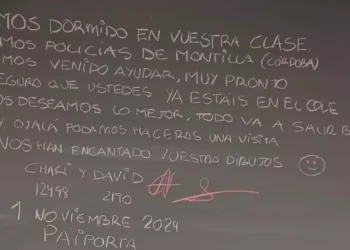 MOS DORMIDO EN VUESTRA CLASE.
MOS POLICÍAS DE MONTILLA (CÓRDOBA)
MOS VENIDO AYUDAR, MUY PRONTO
EGURO QUE USTEDES YA ESTÁIS EN EL COLE
OS DESEAMOS LO MEJOR, TODO VA A SALIR B
Y OJALÁ PODAMOS HACEROS UNA VISITA
NOS HAN ENCANTADO VUESTRO DIBUJOS
CHARI Y DAVID
12498 2170
1 NOVIEMBRE 2024
PAIPORTA